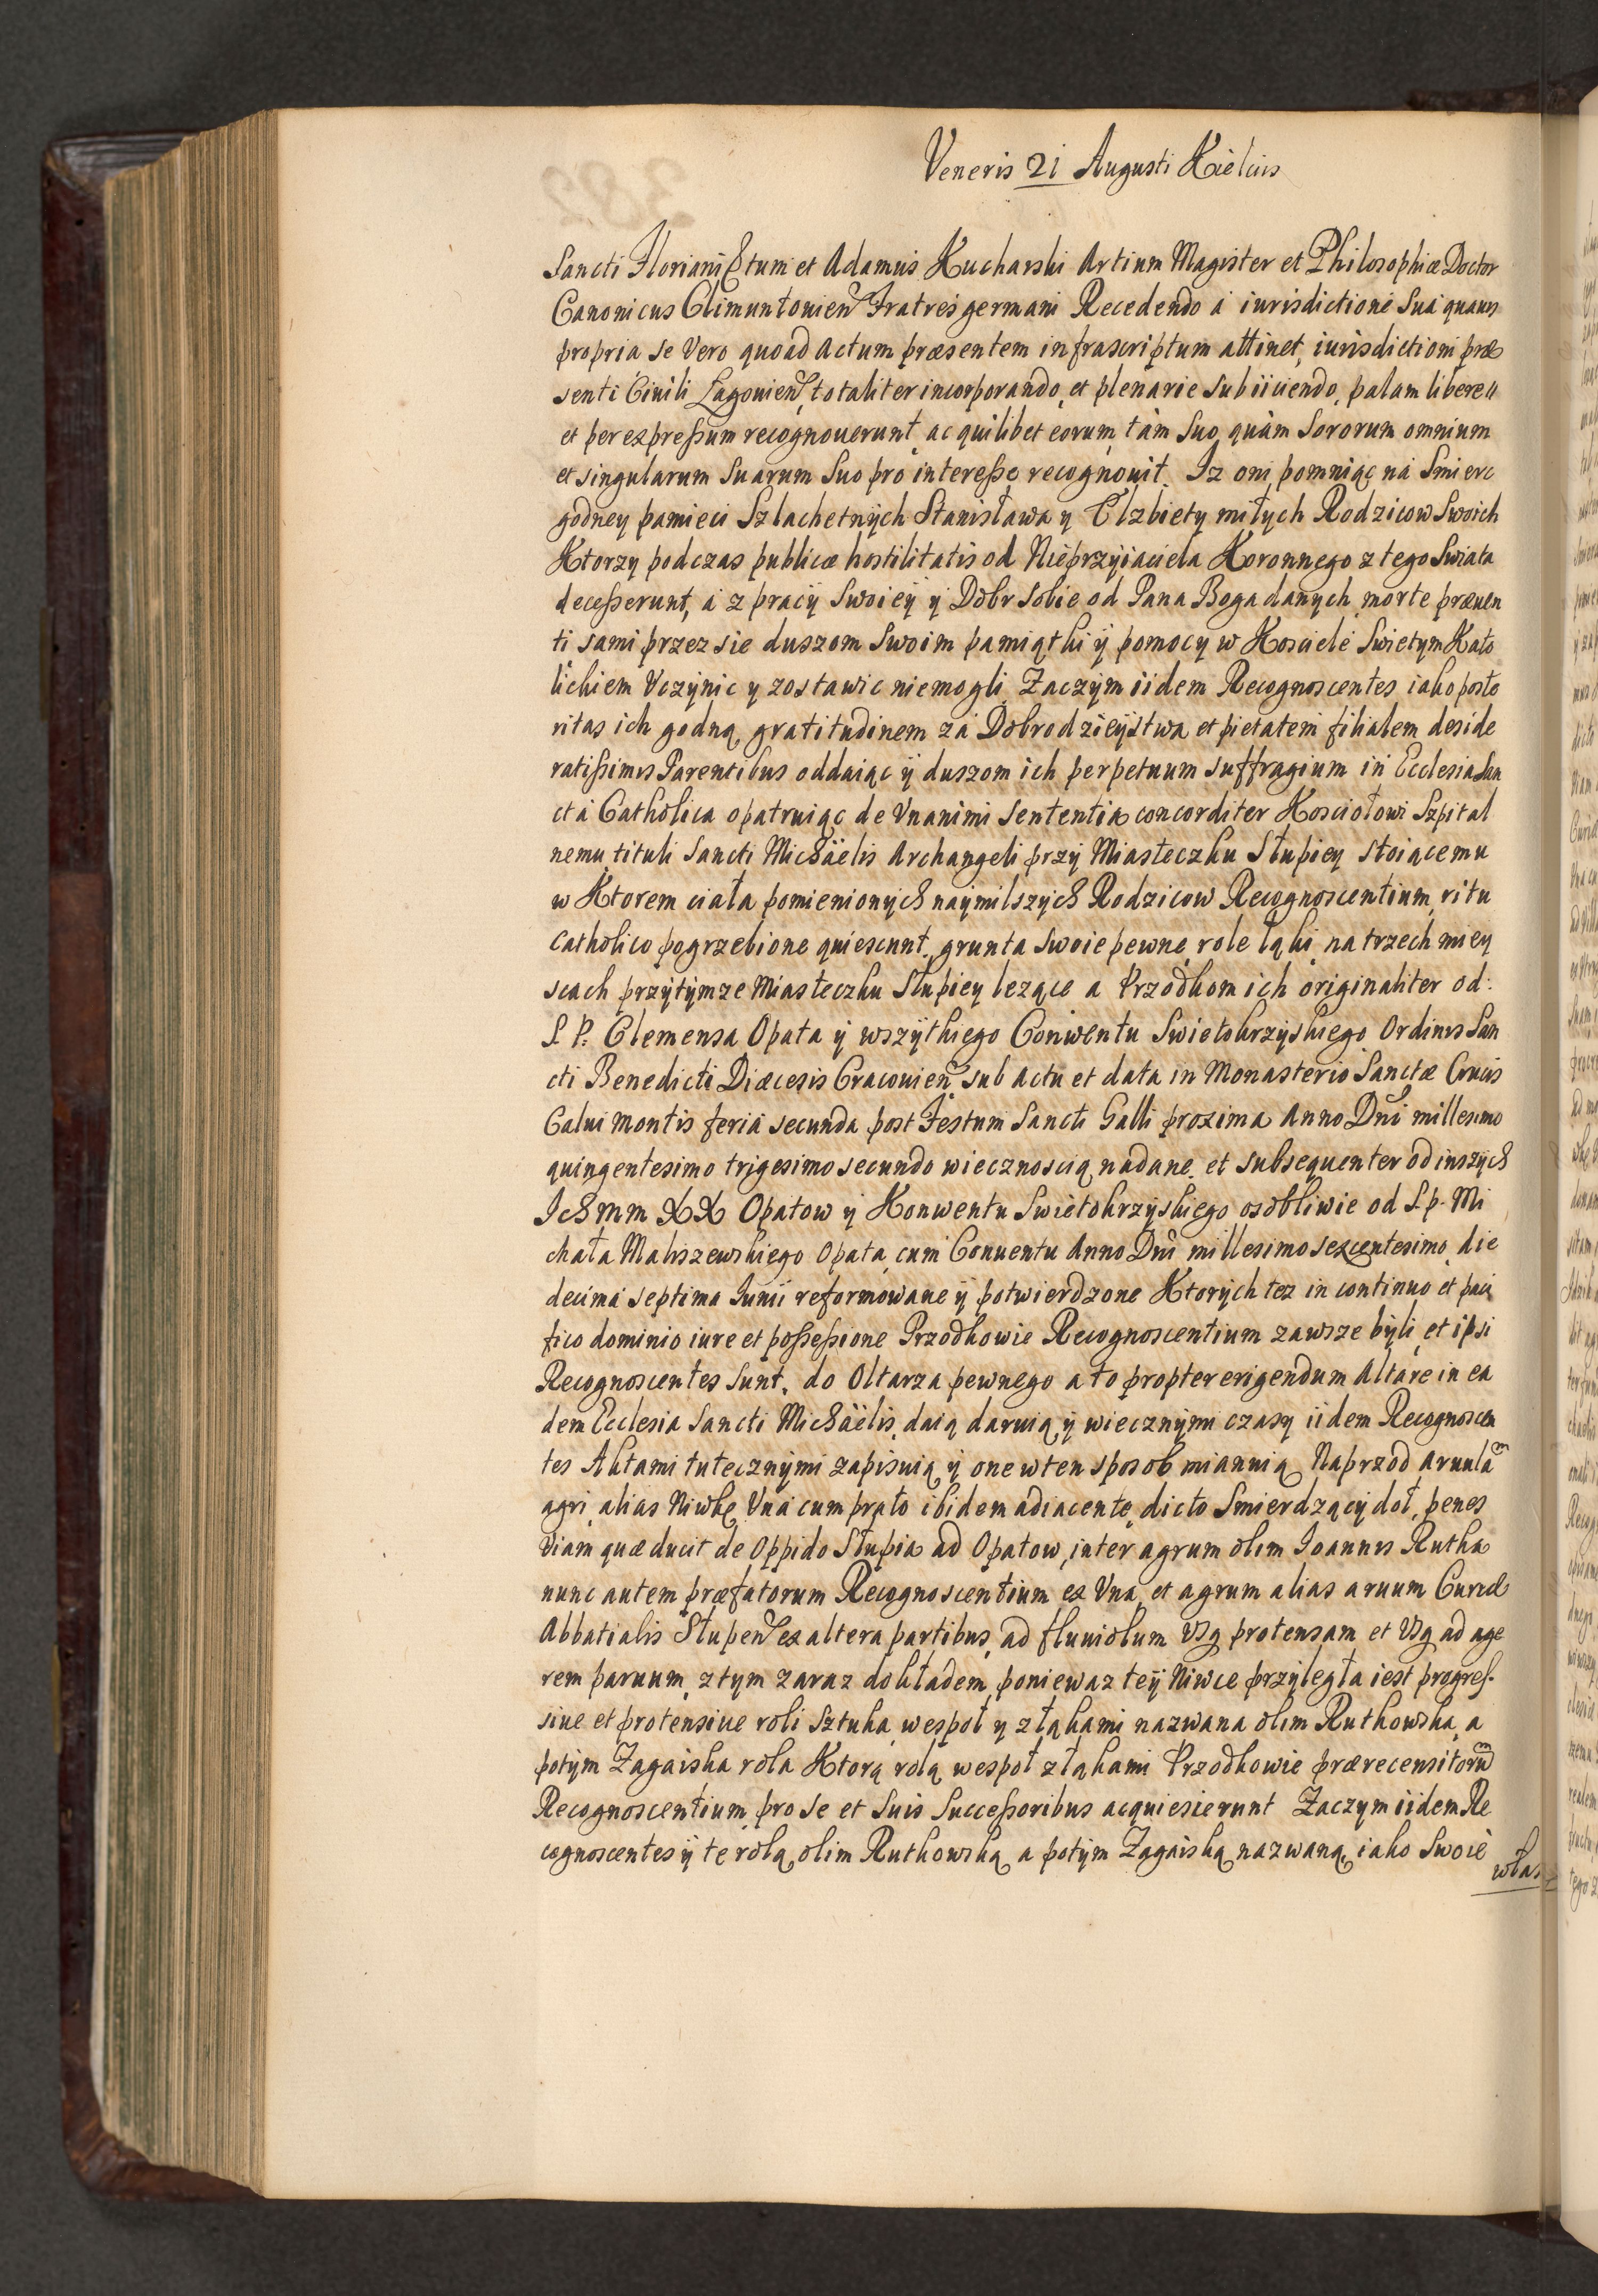 Veneris 21 Augusti Kielciis
Sancti Floriani Etum et Adamus Kucharski Artium Magister et Philosophiæ Doctor
Canonicus Climuntouien Fratres germani Recedendo á iurisdictione Sua quauis
propria se Vero quoad Actum præsentem infrascriptum attinet, iurisdictioni præ
senti Ciuili Lagouien, totaliter incorporando, et plenarie subiiciendo, palam libere
et per expreßum recognouerunt, ac quilibet eorum, tàm Suo, quàm Sororum omnium
et singularum Suarum Suo pro intereße recognouit. Iz oni pomniąc ná Smierc
godney pamieci Szlachetnÿch Stanisława y Elzbiety miłych Rodzicow Swoich
Ktorzy podczas publicæ hostilitatis od Nieprzyiaciela Koronnego z tego Swiata
deceßerunt, á z pracÿ Swoieÿ ÿ Dobr sobie od Pana Boga danych, morte præuen
ti sami przez sie duszom Swoim pamiątki ÿ pomocy w Kosciele Swietym Kato
lickiem Vczÿnic y zostawic niemogli Zaczÿm iidem Recognoscentes iako posto
ritas ich godną, gratitudinem zá Dobrodzieÿstwa et pietatem filialem deside
ratißimis Parentibus oddaiąc ÿ duszom ich perpetuum suffragium in Ecclesia San
cta Catholica opatruiąc de Vnanimi Sententia concorditer Kosciołowi Szpital
nemu tituli Sancti Michäelis Archangeli przÿ Miasteczku Słupiey stoiącemu
w Ktorem ciała pomienionych naÿmilszych Rodzicow Recognoscentium, ritu
catholico pogrzebione quiescunt, grunta swoie pewne, role łąki, na trzech miey
scach przÿtÿmze Miasteczku Słupiey lezące a Przodkom ich originaliter od:
S. P. Clemensa Opata ÿ wszÿtkiego Conwentu Swietokrzyskiego Ordinis San
cti Benedicti Diæcesis Cracouien sub actu et data in Monasterio Sanctæ Crucis
Calui Montis feria secunda post Festum Sancti Galli proxima Anno Dni millesimo
quingentesimo trigesimo secundo wiecznoscią nadane, et subsequenter od inszÿch
Ichmm XX Opatow ÿ Konwentu Swietokrzyskiego osobliwie od S. p. Mi
chała Maliszewskiego Opata, cum Conuentu Anno Dni millesimo sexcentesimo, die
decima septima Iunii reformowane ÿ potwierdzone Ktorych tez in continuo et paci
fico dominio iure et poßeßione Przodkowie Recognoscentium zawsze bÿli, et ipsi
Recognoscentes Sunt, do Ołtarza pewnego a to propter erigendum Altare in ea
dem Ecclesia Sancti Michäelis, daią daruią ÿ wiecznÿmi czasy iidem Recognoscen
tes Aktami tutecznÿmi zapisuią ÿ one w ten sposob mianuią Naprzod Aruulam
agri, alias Niwkę Vná cum prato ibidem adiacente, dicto Smierdzącÿ doł, penes
Viam quæ ducit de Oppido Słupia ad Opatow, inter agrum olim Ioannis Rutka
nunc autem præfatorum Recognoscentium ex Vna, et agrum alias aruum Curiæ
Abbatialis Słupen ex altera partibus, ad fluuiolum Vsq protensam et Vsq ad age
rem paruum, z tym zaraz dokładem, poniewaz teÿ Niwce przÿległa iest progreß
siue et protensiue roli Sztuka, wespoł y z łąkami nazwana olim Rutkowska, a
potÿm Zagaiska rola Ktorą rolą wespoł z łąkami Przodkowie prærecensitorum
Recognoscentium, pro se et Suis Succeßoribus acquiesierunt Zaczym iidem Re
cognoscentes ÿ te rolą, olim Rutkowską, a potÿm Zagaiską nazwaną, iako Swoie
włas